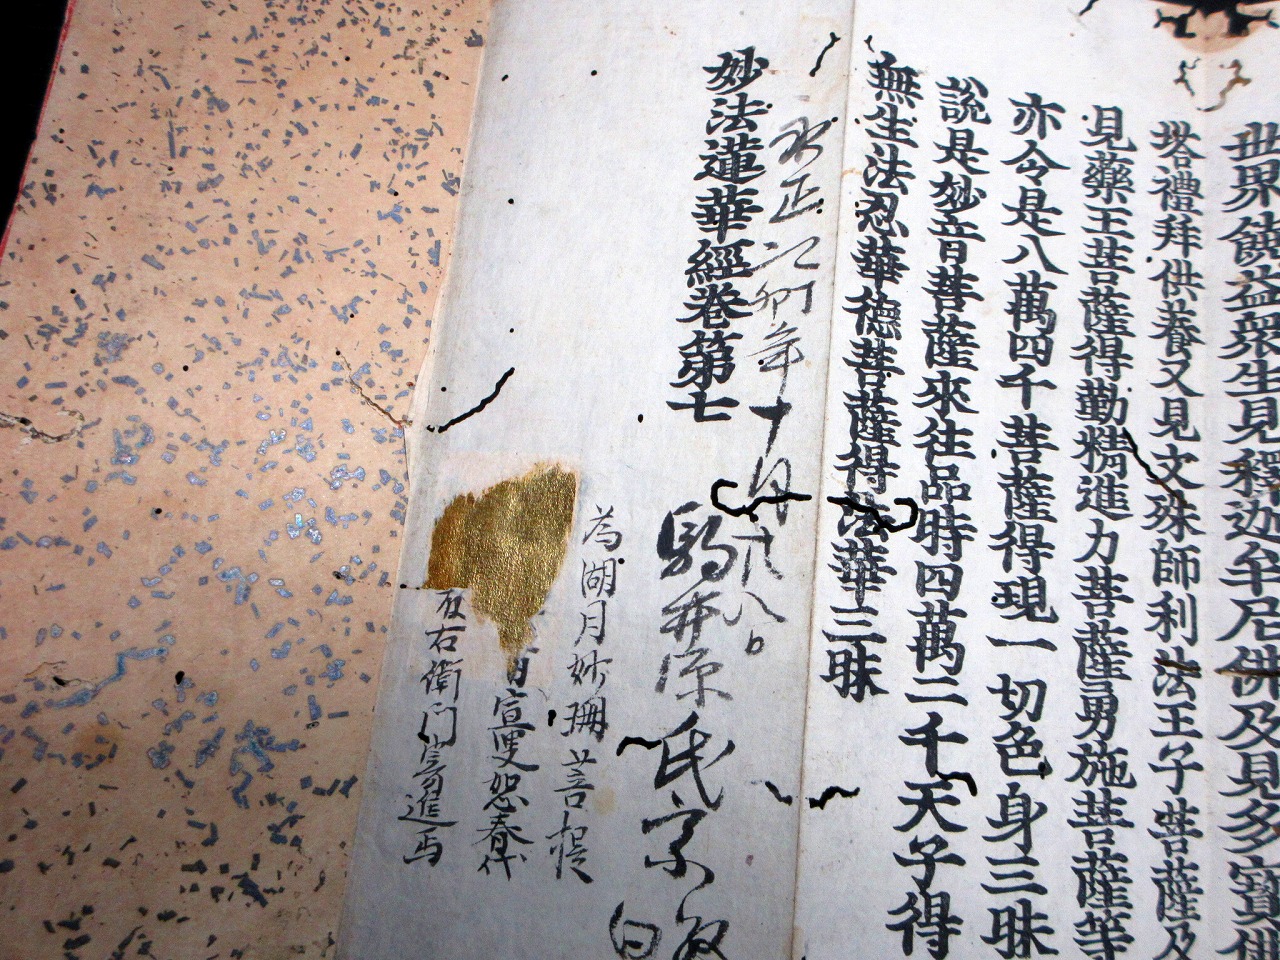 世界饒益衆生見釋迦牟尼佛及見多寶佛
塔禮拜供養又見文殊師利法王子菩薩及
見藥王菩薩得勤精進力菩薩勇施菩薩等
亦令是八萬四千菩薩得現一切色身三昧
說是妙音菩薩來往品時四萬二千天子得
無生法忍華德菩薩得法華三昧
永正 卯年十月 八日
妙法蓮華經卷第七
駒井 源氏宗
白
為湖月妙珊菩提
宣叟恕春代
右衛門 進